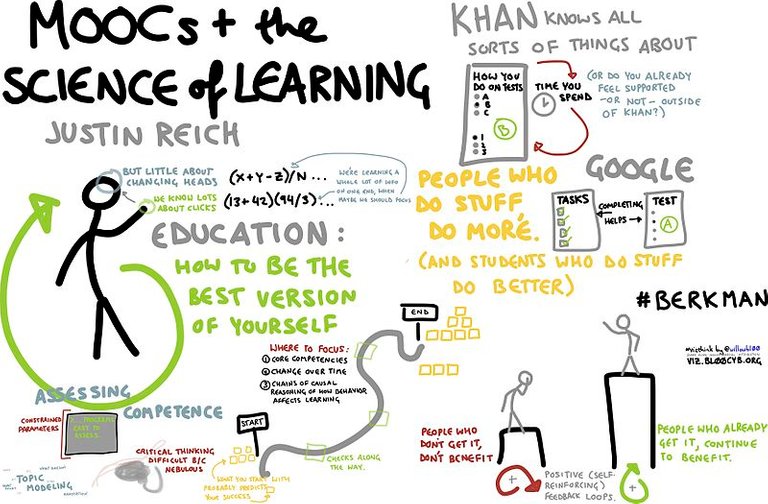 MOOCs + the
SCIENCE of LEARNING
JUSTIN REICH
KHAN KNOWS ALL
SORTS OF THINGS ABOUT
HOW YOU
DO ON TESTS
A
B
C
B
1
2
3
TIME YOU
SPEND
(OR DO YOU ALREADY
FEEL SUPPORTED
-OR NOT- OUTSIDE
OF KHAN?)
BUT LITTLE ABOUT
CHANGING HEADS
WE KNOW LOTS
ABOUT CLICKS
(X+Y-Z)/N ...
(13+42)(94/3)...
WE'RE LEARNING A
WHOLE LOT OF INFO
ON ONE END, WHEN
MAYBE WE SHOULD FOCUS
EDUCATION:
HOW TO BE THE
BEST VERSION
OF YOURSELF
PEOPLE WHO
DO STUFF
DO MORE.
(AND STUDENTS WHO DO STUFF
DO BETTER)
GOOGLE
TASKS
COMPLETING
HELPS
TEST
A
#BERKMAN
VIZ.BL00CYB.ORG
END
WHERE TO FOCUS:
1 CORE COMPETENCIES
2 CHANGE OVER TIME
3 CHAINS OF CAUSAL
REASONING OF HOW BEHAVIOR
AFFECTS LEARNING
START
CHECKS ALONG
THE WAY.
WHAT YOU START WITH
PROBABLY PREDICTS
YOUR SUCCESS
ASSESSING
COMPETENCE
CONSTRAINED
PARAMETERS
PROGRAMS
EASY TO
ASSESS
CRITICAL THINKING
DIFFICULT B/C
NEBULOUS
TOPIC
MODELING
PEOPLE WHO
DON'T GET IT,
DON'T BENEFIT
+
POSITIVE (SELF-
REINFORCING)
FEEDBACK LOOPS.
+
PEOPLE WHO ALREADY
GET IT, CONTINUE
TO BENEFIT.